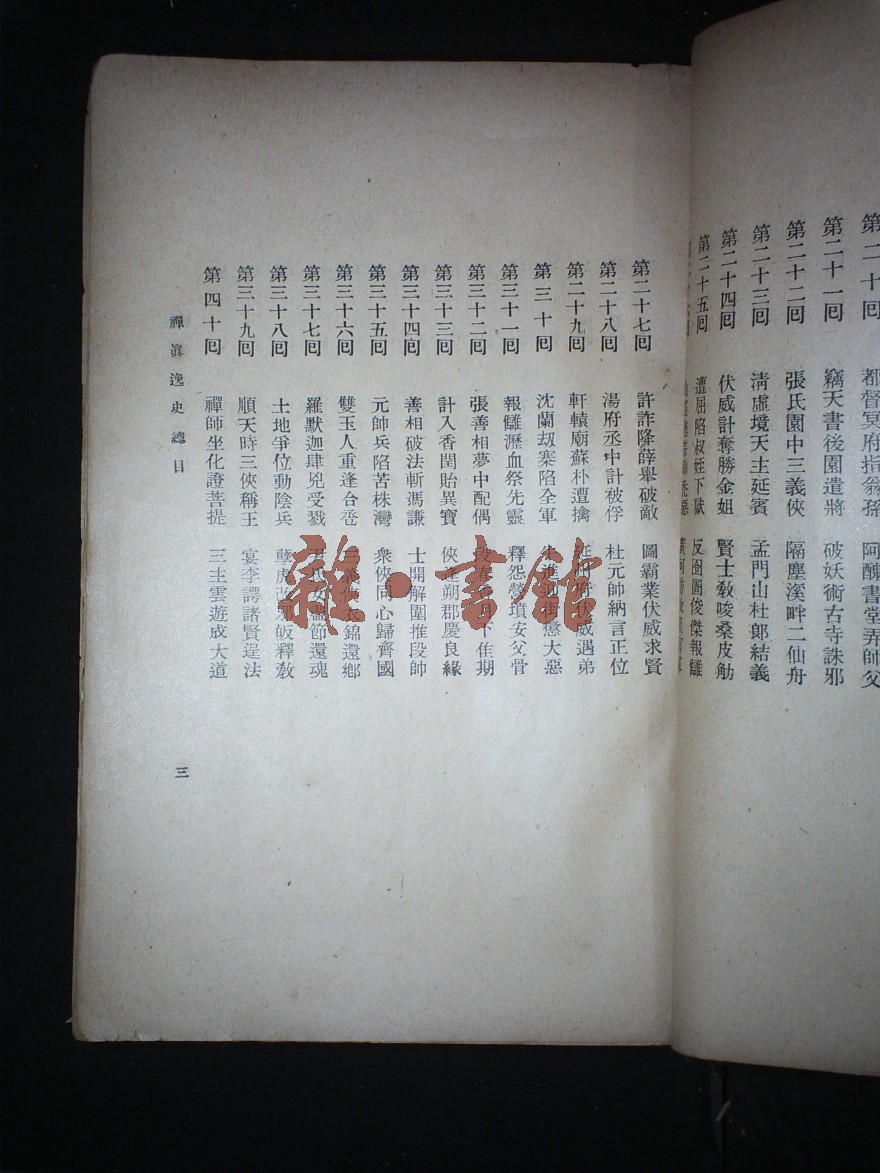 第二十回 都督冥府指翁孫 阿醜書堂弄師父
第二十一回 竊天書後園遣將 破妖術古寺誅邪
第二十二回 張氏園中三義俠 隔塵溪畔二仙舟
第二十三回 清虛境天主延賓 孟門山杜郎結義
第二十四回 伏威計奪勝金姐 賢士教唆桑皮觔
第二十五回 遭屈陷叔姪下獄 反囹圄俊傑報讎
第二十七回 許詐降薛舉破敵 圖霸業伏威求賢
第二十八回 湯府丞中計被俘 杜元帥納言正位
第二十九回 軒轅廟蘇朴遭擒 延州府伏威遇弟
第三十回 沈蘭刼寨陷全軍 懲大惡
第三十一回 報讎瀝血祭先靈 釋怨營墳安父骨
第三十二回 張善相夢中配偶 下佳期
第三十三回 計入香閨貽異寶 俠逢朔郡慶良緣
第三十四回 善相破法斬馮謙 士開解圍推段帥
第三十五回 元帥兵陷苦株灣 衆俠同心歸齊國
第三十六回 雙玉人重逢合巹 衣錦還鄉
第三十七回 羅默迦肆兇受戮 節還魂
第三十八回 土地爭位動陰兵 孽虎改邪皈釋教
第三十九回 順天時三俠稱王 宴李諤諸賢逞法
第四十回 禪師坐化證菩提 三主雲遊成大道
禪眞逸史總目
三
雜·書館